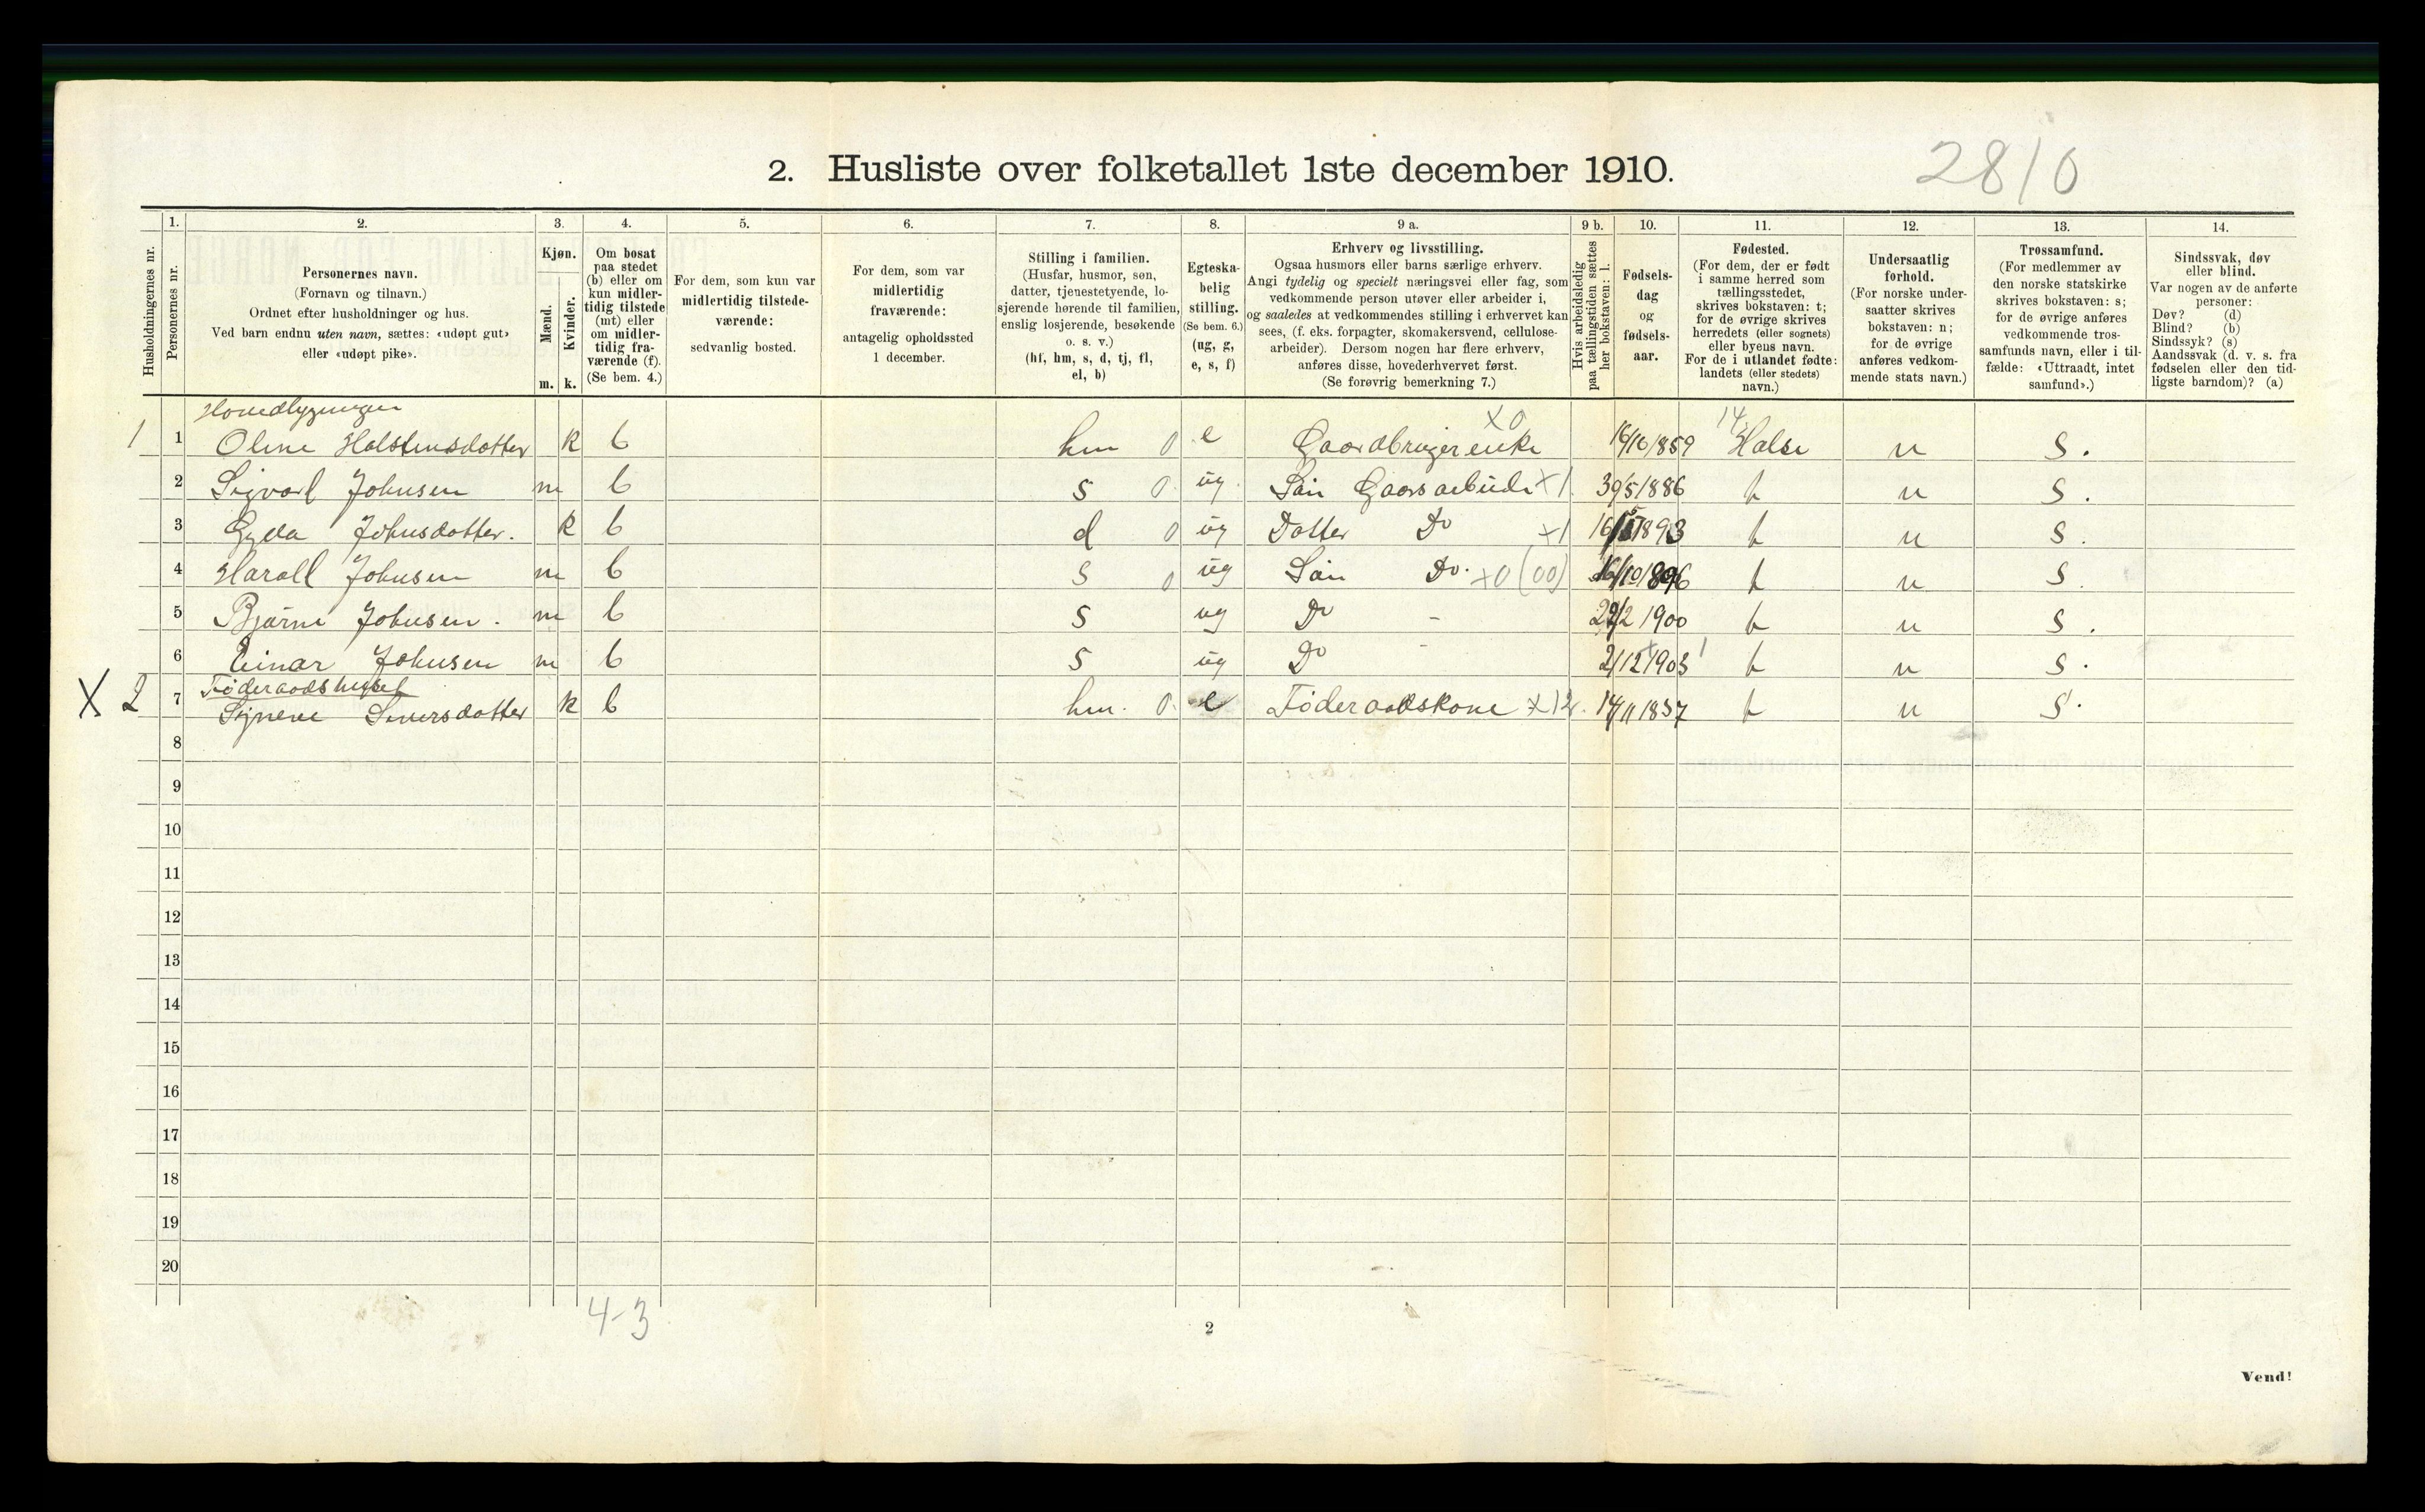 2. Husliste over folketallet 1ste december 1910.
2810
Husholdningernes nr.
1. Personernes nr.
2. Personernes navn.
(Fornavn og tilnavn.)
Ordnet efter husholdninger og hus.
Ved barn endnu uten navn, sættes: «udøpt gut»
eller «udøpt pike».
3. Kjøn.
Mænd. m.
Kvinder. k.
4. Om bosat
paa stedet
(b) eller om
kun midler-
tidig tilstede
(mt) eller
om midler-
tidig fra-
værende (f).
(Se bem. 4.)
5. For dem, som kun var
midlertidig tilstede-
værende:
sedvanlig bosted.
6. For dem, som var
midlertidig
fraværende:
antagelig opholdssted
1 december.
7. Stilling i familien.
(Husfar, husmor, søn,
datter, tjenestetyende, lo-
sjerende hørende til familien,
enslig losjerende, besøkende
o. s. v.)
(hf, hm, s, d, tj, fl,
el, b)
8. Egteska-
belig
stilling.
(Se bem. 6.)
(ug, g,
e, s, f)
9 a. Erhverv og livsstilling.
Ogsaa husmors eller barns særlige erhverv.
Angi tydelig og specielt næringsvei eller fag, som
vedkommende person utøver eller arbeider i,
og saaledes at vedkommendes stilling i erhvervet kan
sees, (f. eks. forpagter, skomakersvend, cellulose-
arbeider). Dersom nogen har flere erhverv,
anføres disse, hovederhvervet først.
(Se forøvrig bemerkning 7.)
9 b. Hvis arbeidsledig
paa tællingstiden sættes
her bokstaven: l.
10. Fødsels-
dag
og
fødsels-
aar.
11. Fødested.
(For dem, der er født
i samme herred som
tællingsstedet,
skrives bokstaven: t;
for de øvrige skrives
herredets (eller sognets)
eller byens navn.
For de i utlandet fødte:
landets (eller stedets)
navn.)
12. Undersaatlig
forhold.
(For norske under-
saatter skrives
bokstaven: n;
for de øvrige
anføres vedkom-
mende stats navn.)
13. Trossamfund.
(For medlemmer av
den norske statskirke
skrives bokstaven: s;
for de øvrige anføres
vedkommende tros-
samfunds navn, eller i til-
fælde: «Uttraadt, intet
samfund».)
14. Sindssvak, døv
eller blind.
Var nogen av de anførte
personer:
Døv? (d)
Blind? (b)
Sindssyk? (s)
Aandssvak (d. v. s. fra
fødselen eller den tid-
ligste barndom)? (a)
Hovedbygningen
1 1 Oline Halstensdatter k b hm 0 e Gaardbrugerenke x0 16/10 1859 14 Halse n S.
2 Sigvard Johnsen m b s 0 ug Sön Gaardsarbeide x1 30/5 1886 t n S.
3 Gyda Johnsdatter. k b d 0 ug Datter Do x1 1893 t n S.
4 Harall Johnsen m b s 0 ug Sön Do. x0 (00) 16/10 1896 t n S.
5 Bjarne Johnsen. m b s ug Do - 1900 t n S.
6 Einar Johnsen m b s ug Do - 2/12 1903 t n S.
Föderaadshuset
X 2 7 Siversdatter k b hm. 0 e Föderaadskone x12. t n S.
8
9
10
11
12
13
14
15
16
17
18
19
20
4-3
2
Vend!